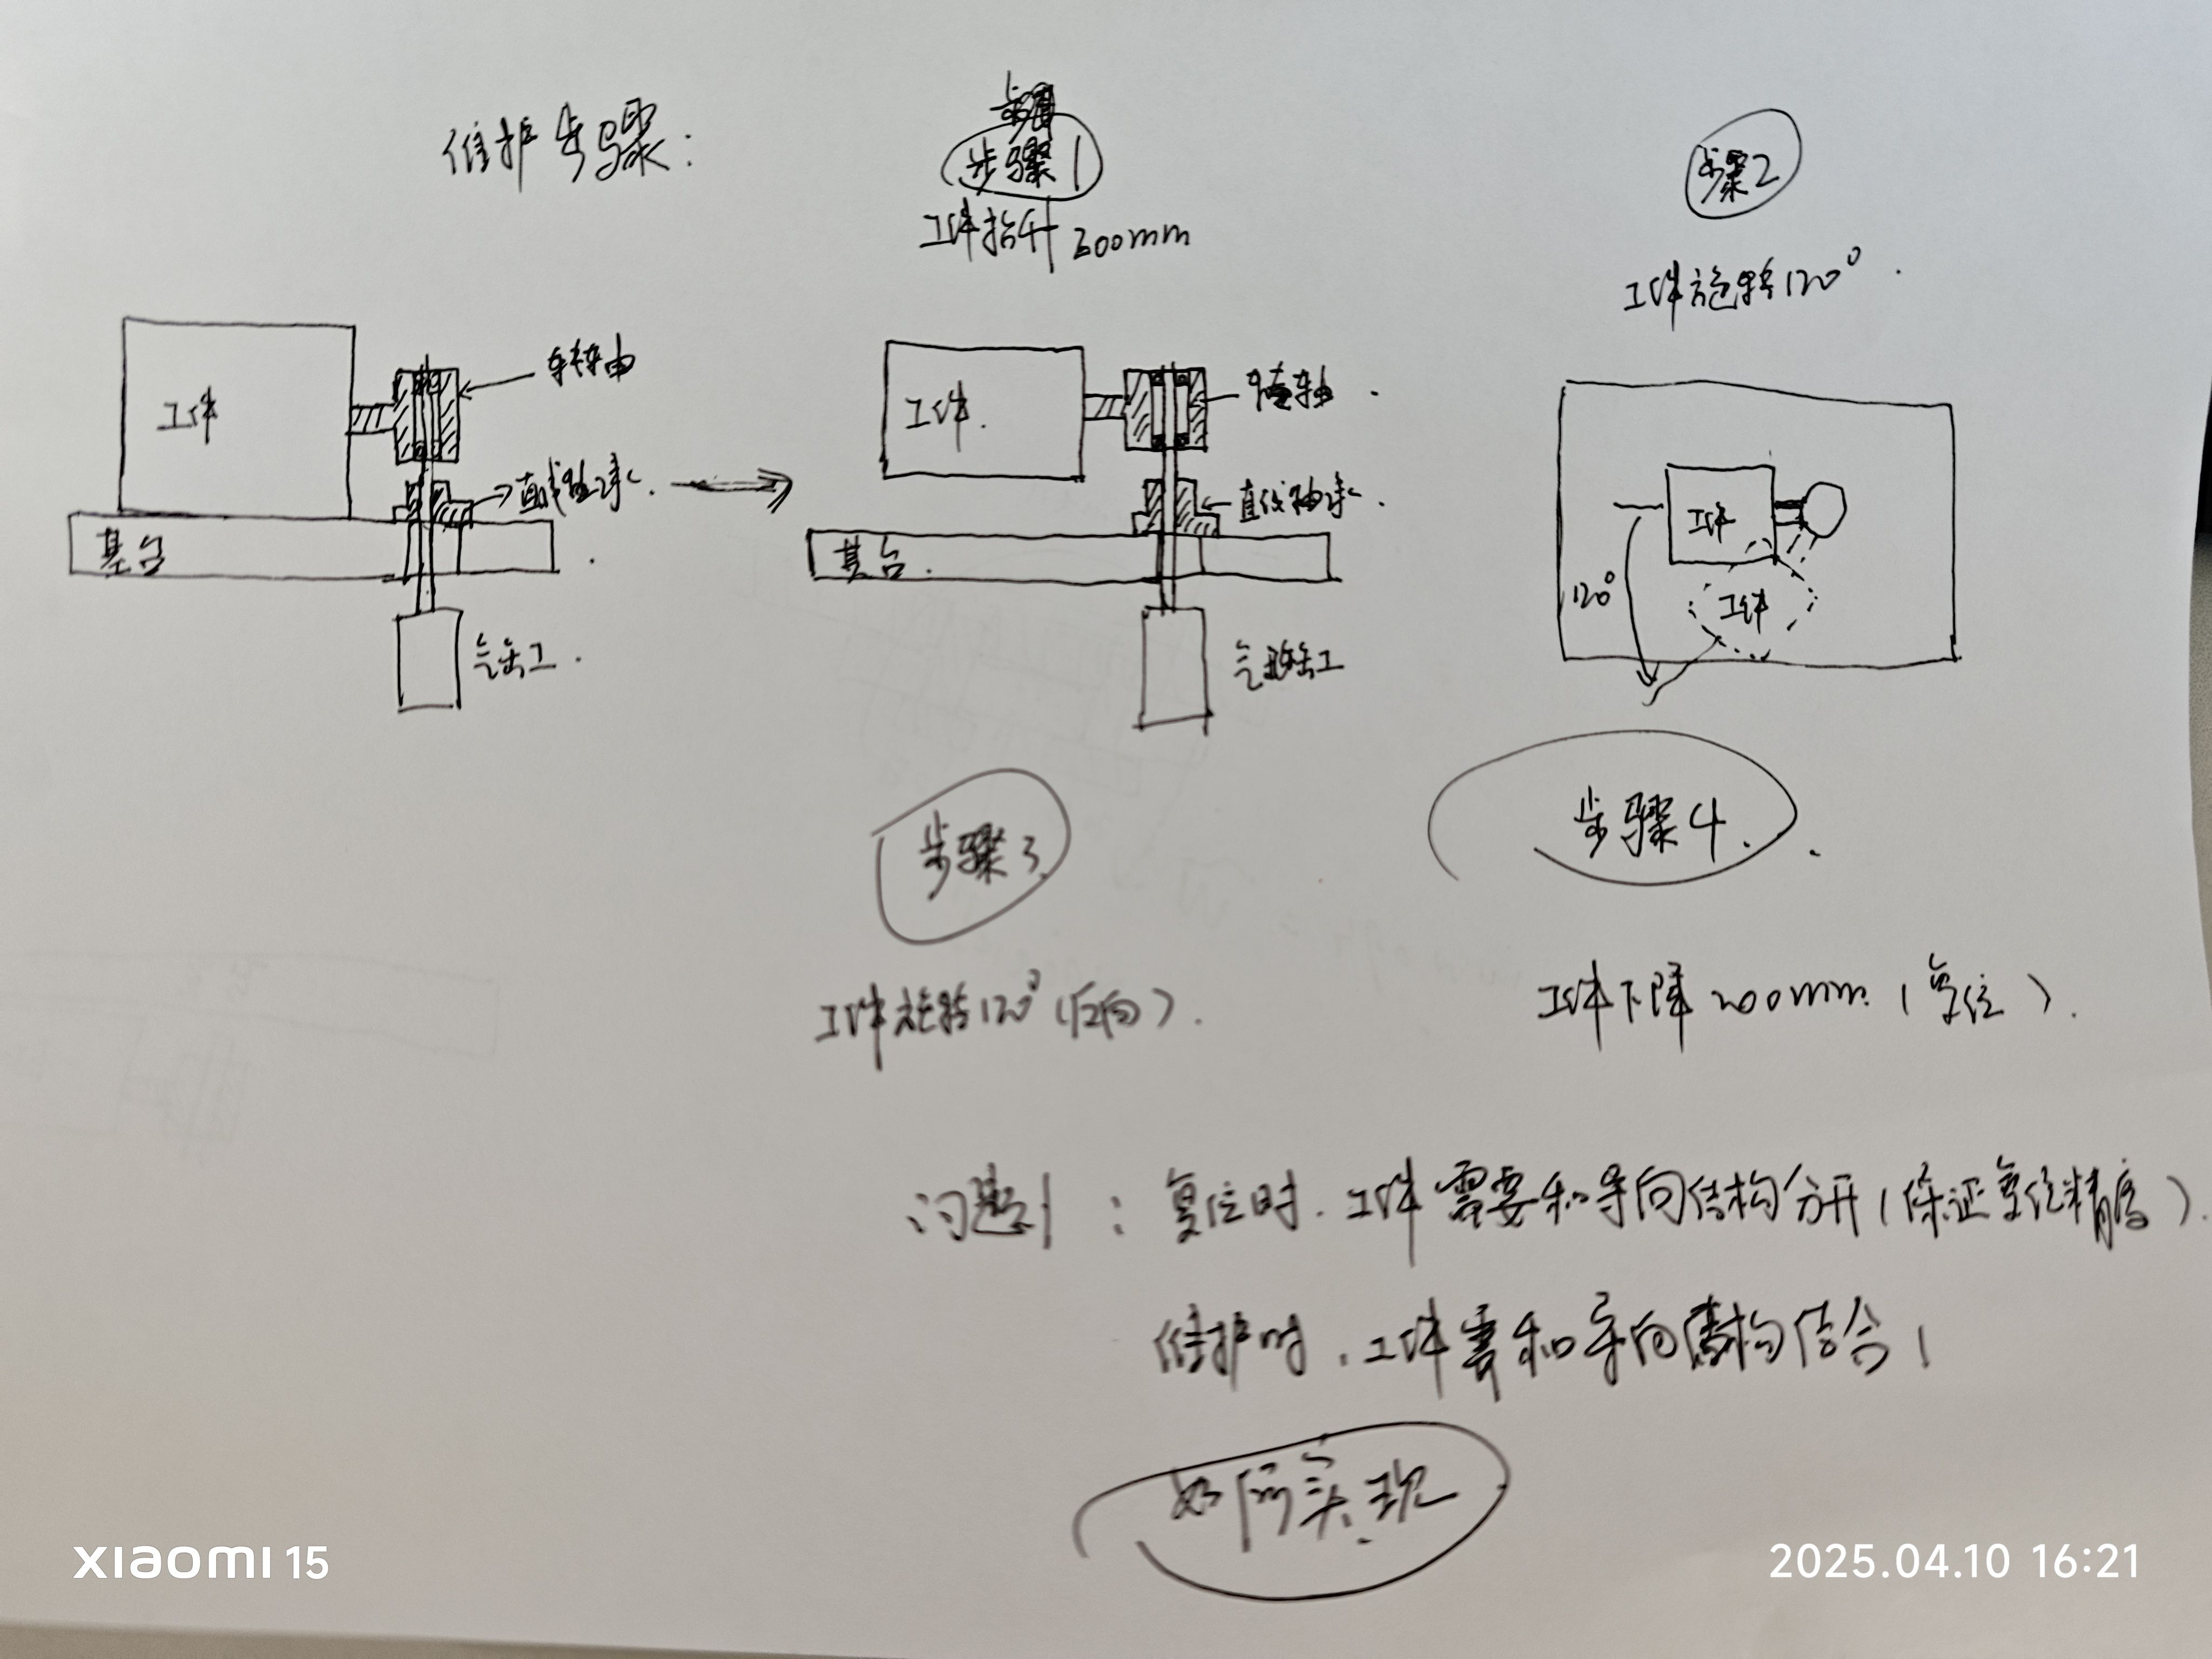 维护步骤：
步骤1
工件抬升 200mm
步骤2
工件旋转120°.
工件
转轴
直线轴承.
基台
气缸工.
工件.
转轴.
直线轴承.
基台.
气缸工
工件
120°
工件
步骤3.
工件旋转120°（反向）.
步骤4.
工件下降200mm.（复位）.
问题1：复位时.工件需要和导向结构分开（保证复位精度）.
维护时.工件需和导向结构结合！
如何实现
xiaomi 15
2025.04.10 16:21